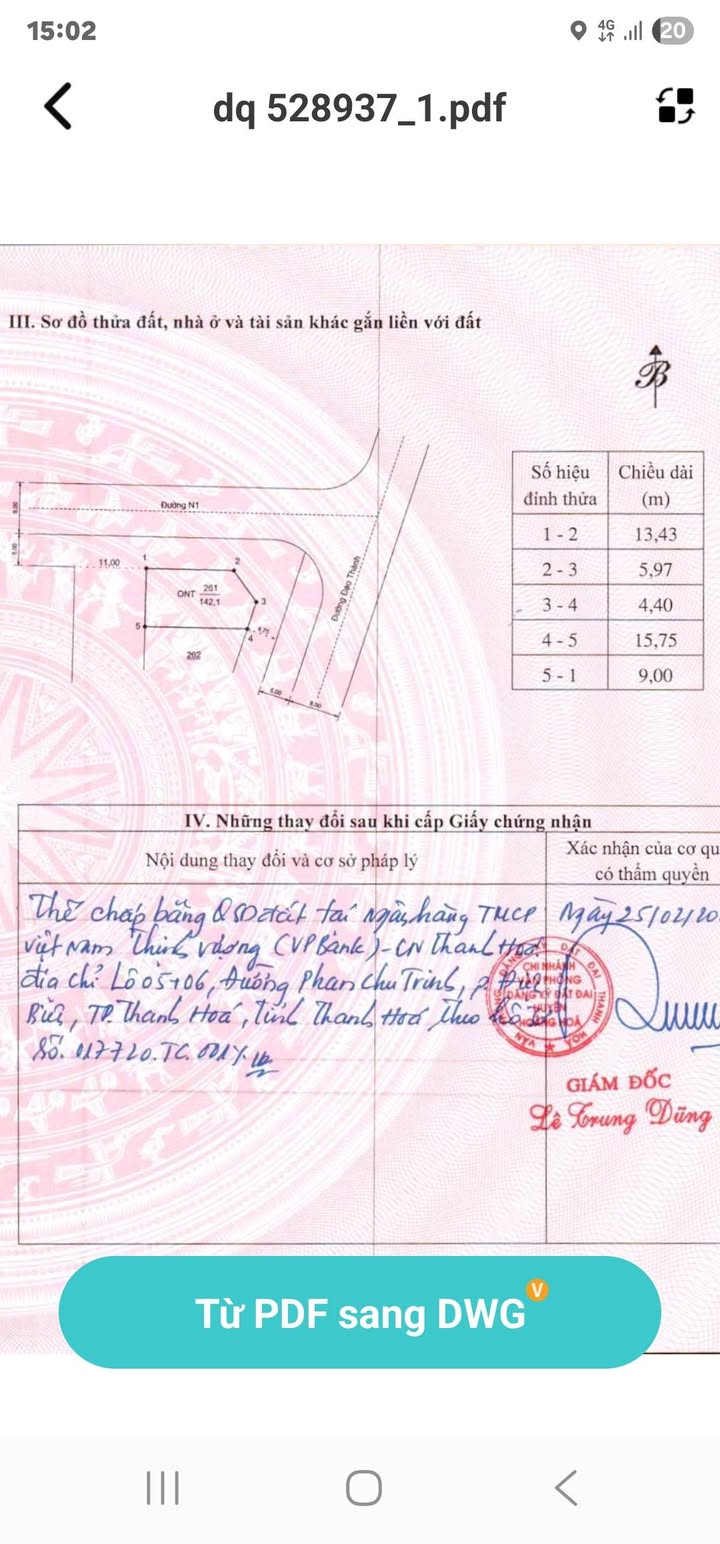 15:02
4G
20
dq 528937_1.pdf
III. Sơ đồ thửa đất, nhà ở và tài sản khác gắn liền với đất
B
Số hiệu đỉnh thửa Chiều dài (m)
1 - 2 13,43
2 - 3 5,97
3 - 4 4,40
4 - 5 15,75
5 - 1 9,00
Đường N1
8.00
5.00
11,00
1
2
ONT 261
142,1
3
5
4
1.71
262
Đường Đạo Thành
5.00
8.00
IV. Những thay đổi sau khi cấp Giấy chứng nhận
Nội dung thay đổi và cơ sở pháp lý
Xác nhận của cơ qu
có thẩm quyền
Thế chấp bằng QSD đất tại Ngân hàng TMCP
Việt Nam Thịnh Vượng (VPBank)-CN Thanh Hoá
địa chỉ Lô 05+06, Đường Phan Chu Trinh, P. Điện
Biên, TP. Thanh Hoá, Tỉnh Thanh Hoá theo hồ sơ
Số. 017720.TC.001
Ngày 25/02/20
CHI NHÁNH
VĂN PHÒNG
ĐĂNG KÝ ĐẤT ĐAI
HUYỆN
HOẰNG HOÁ
GIÁM ĐỐC
Lê Trung Dũng
Từ PDF sang DWG
V